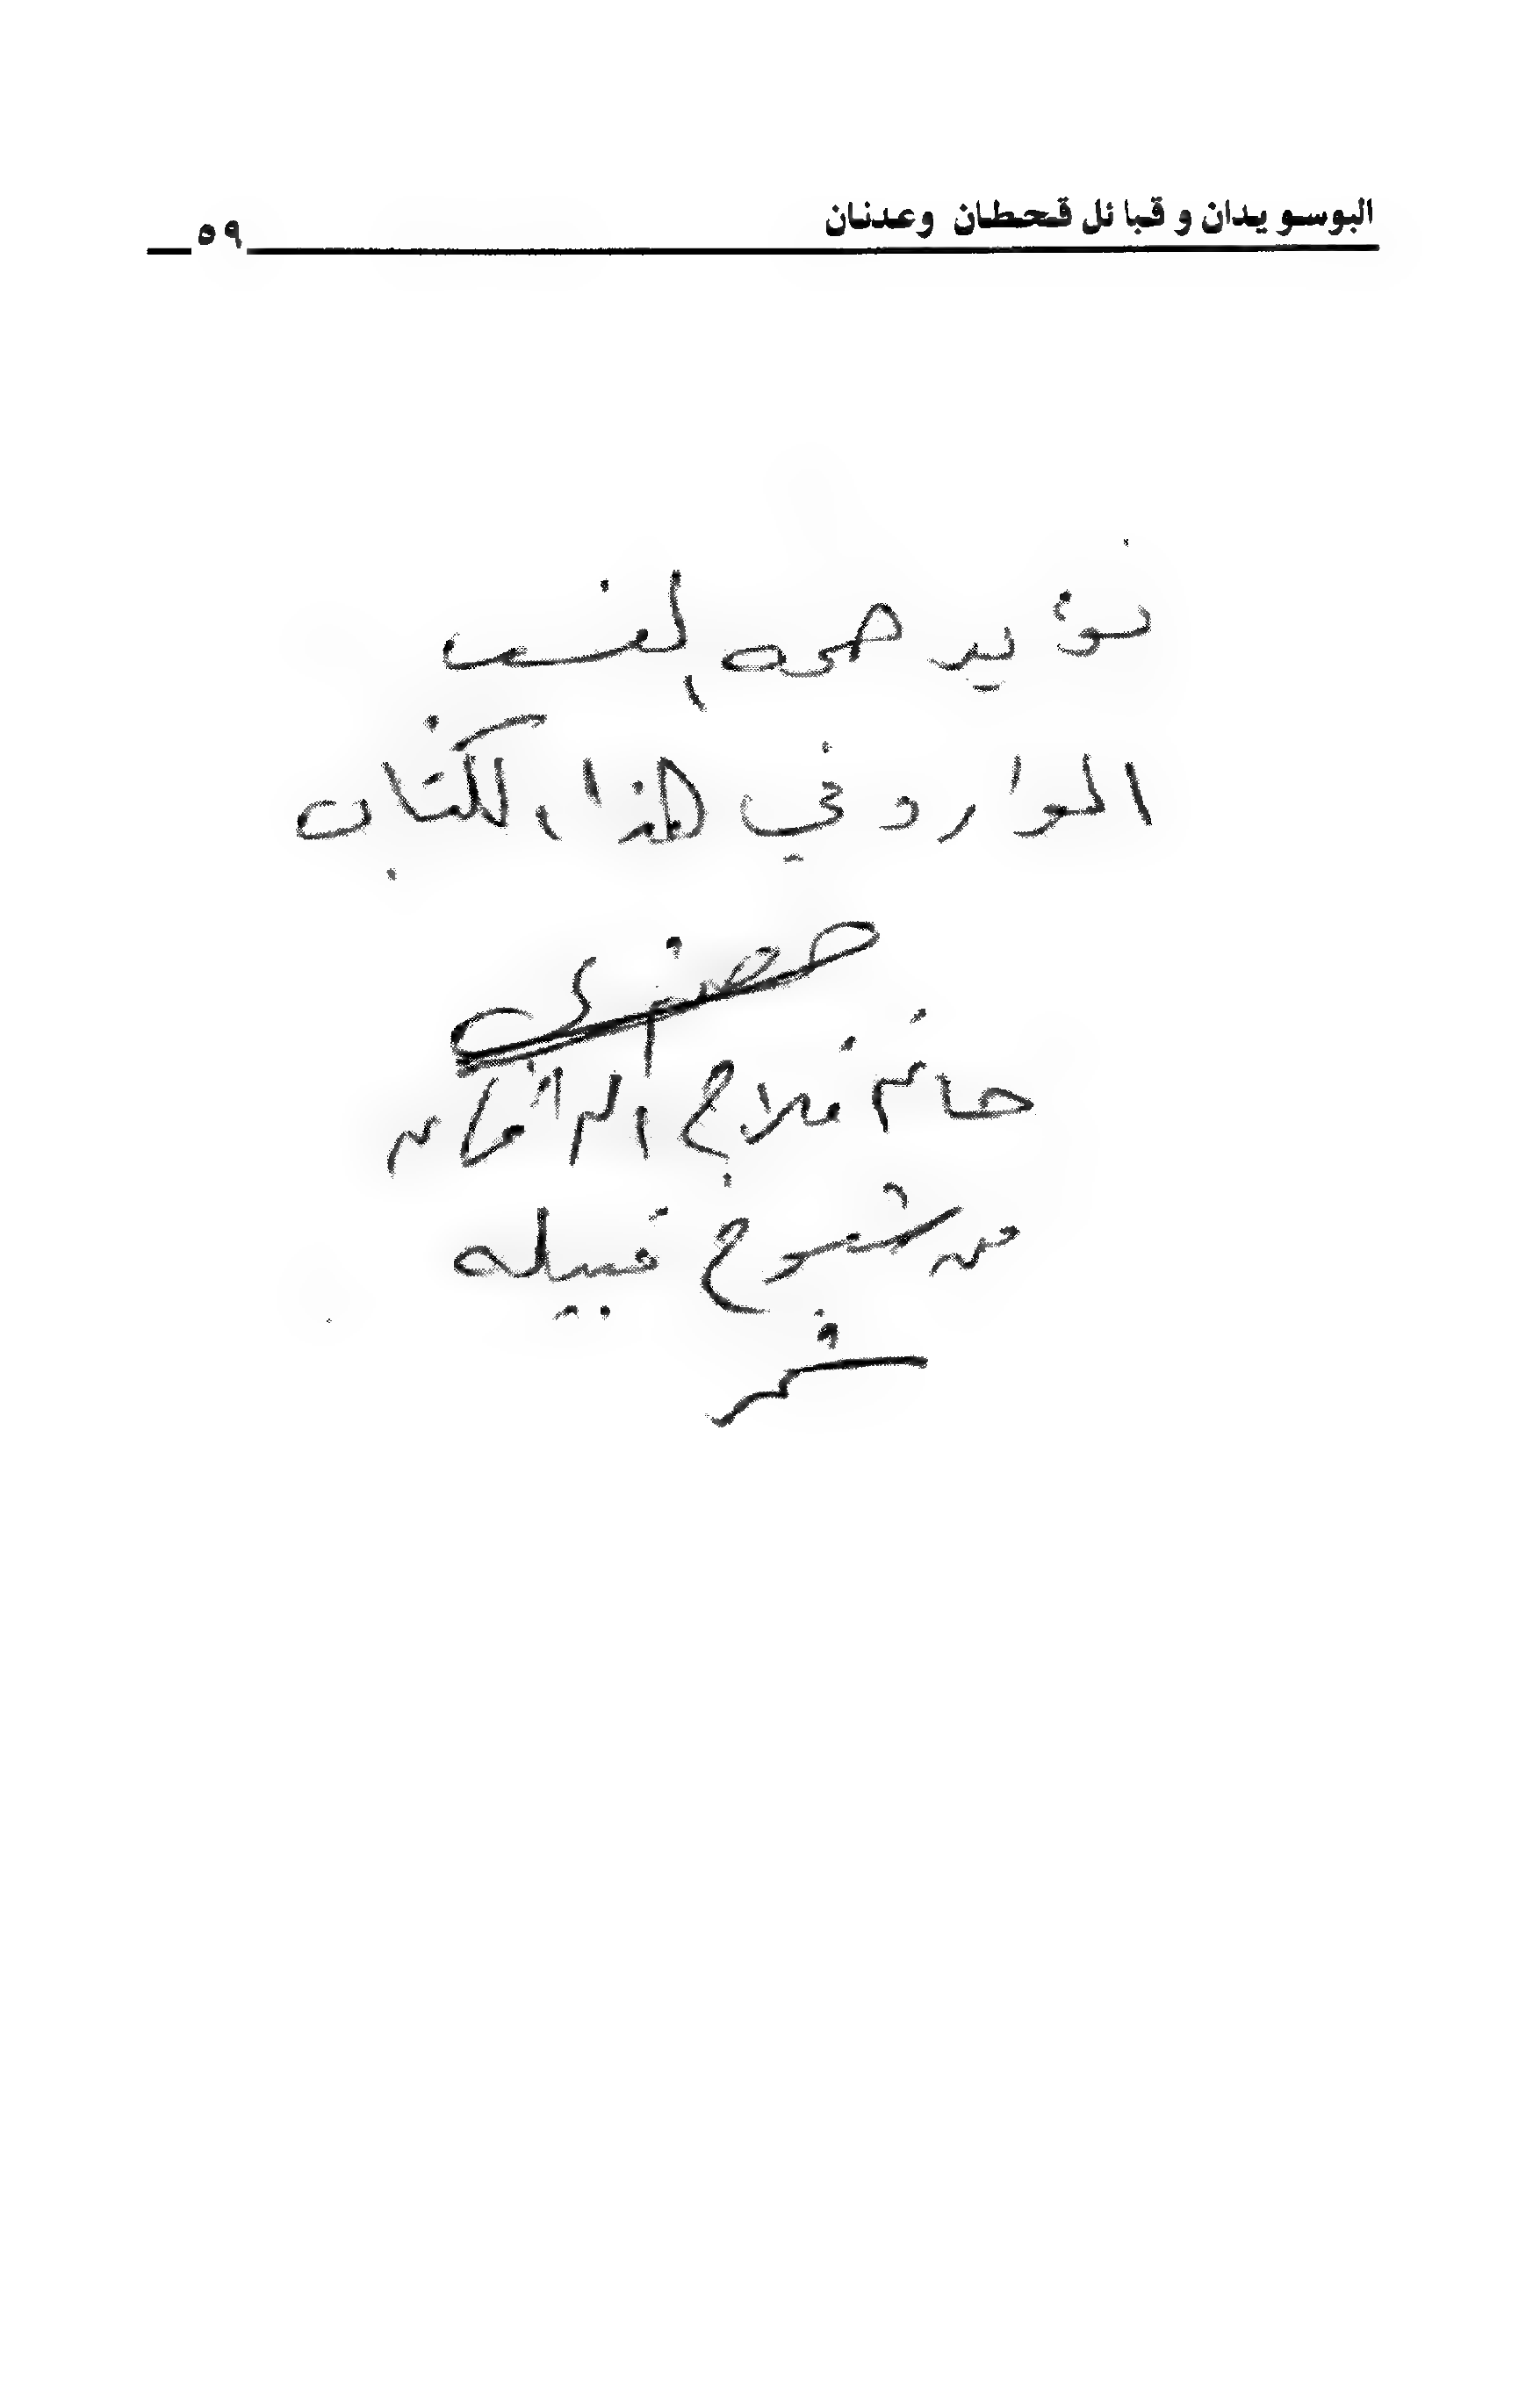 البوسويدان وقبائل قحطان وعدنان
٥٩
نؤيد صحه النسب
الوارد في هذا الكتاب
حاتم فلاح
من شيوخ قبيله
شمر